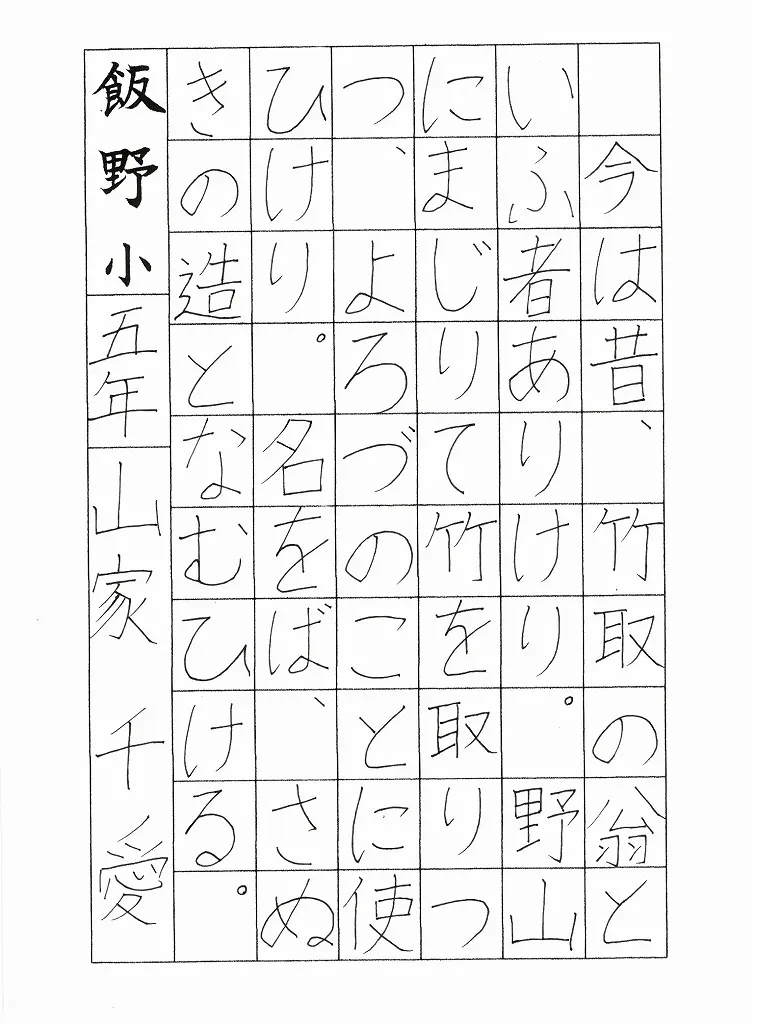 今は昔、竹取の翁と
いふ者ありけり。野山
にまじりて竹を取りつ
つ、よろづのことに使
ひけり。名をば、さぬ
きの造となむひける。
飯野小五年山家 千愛